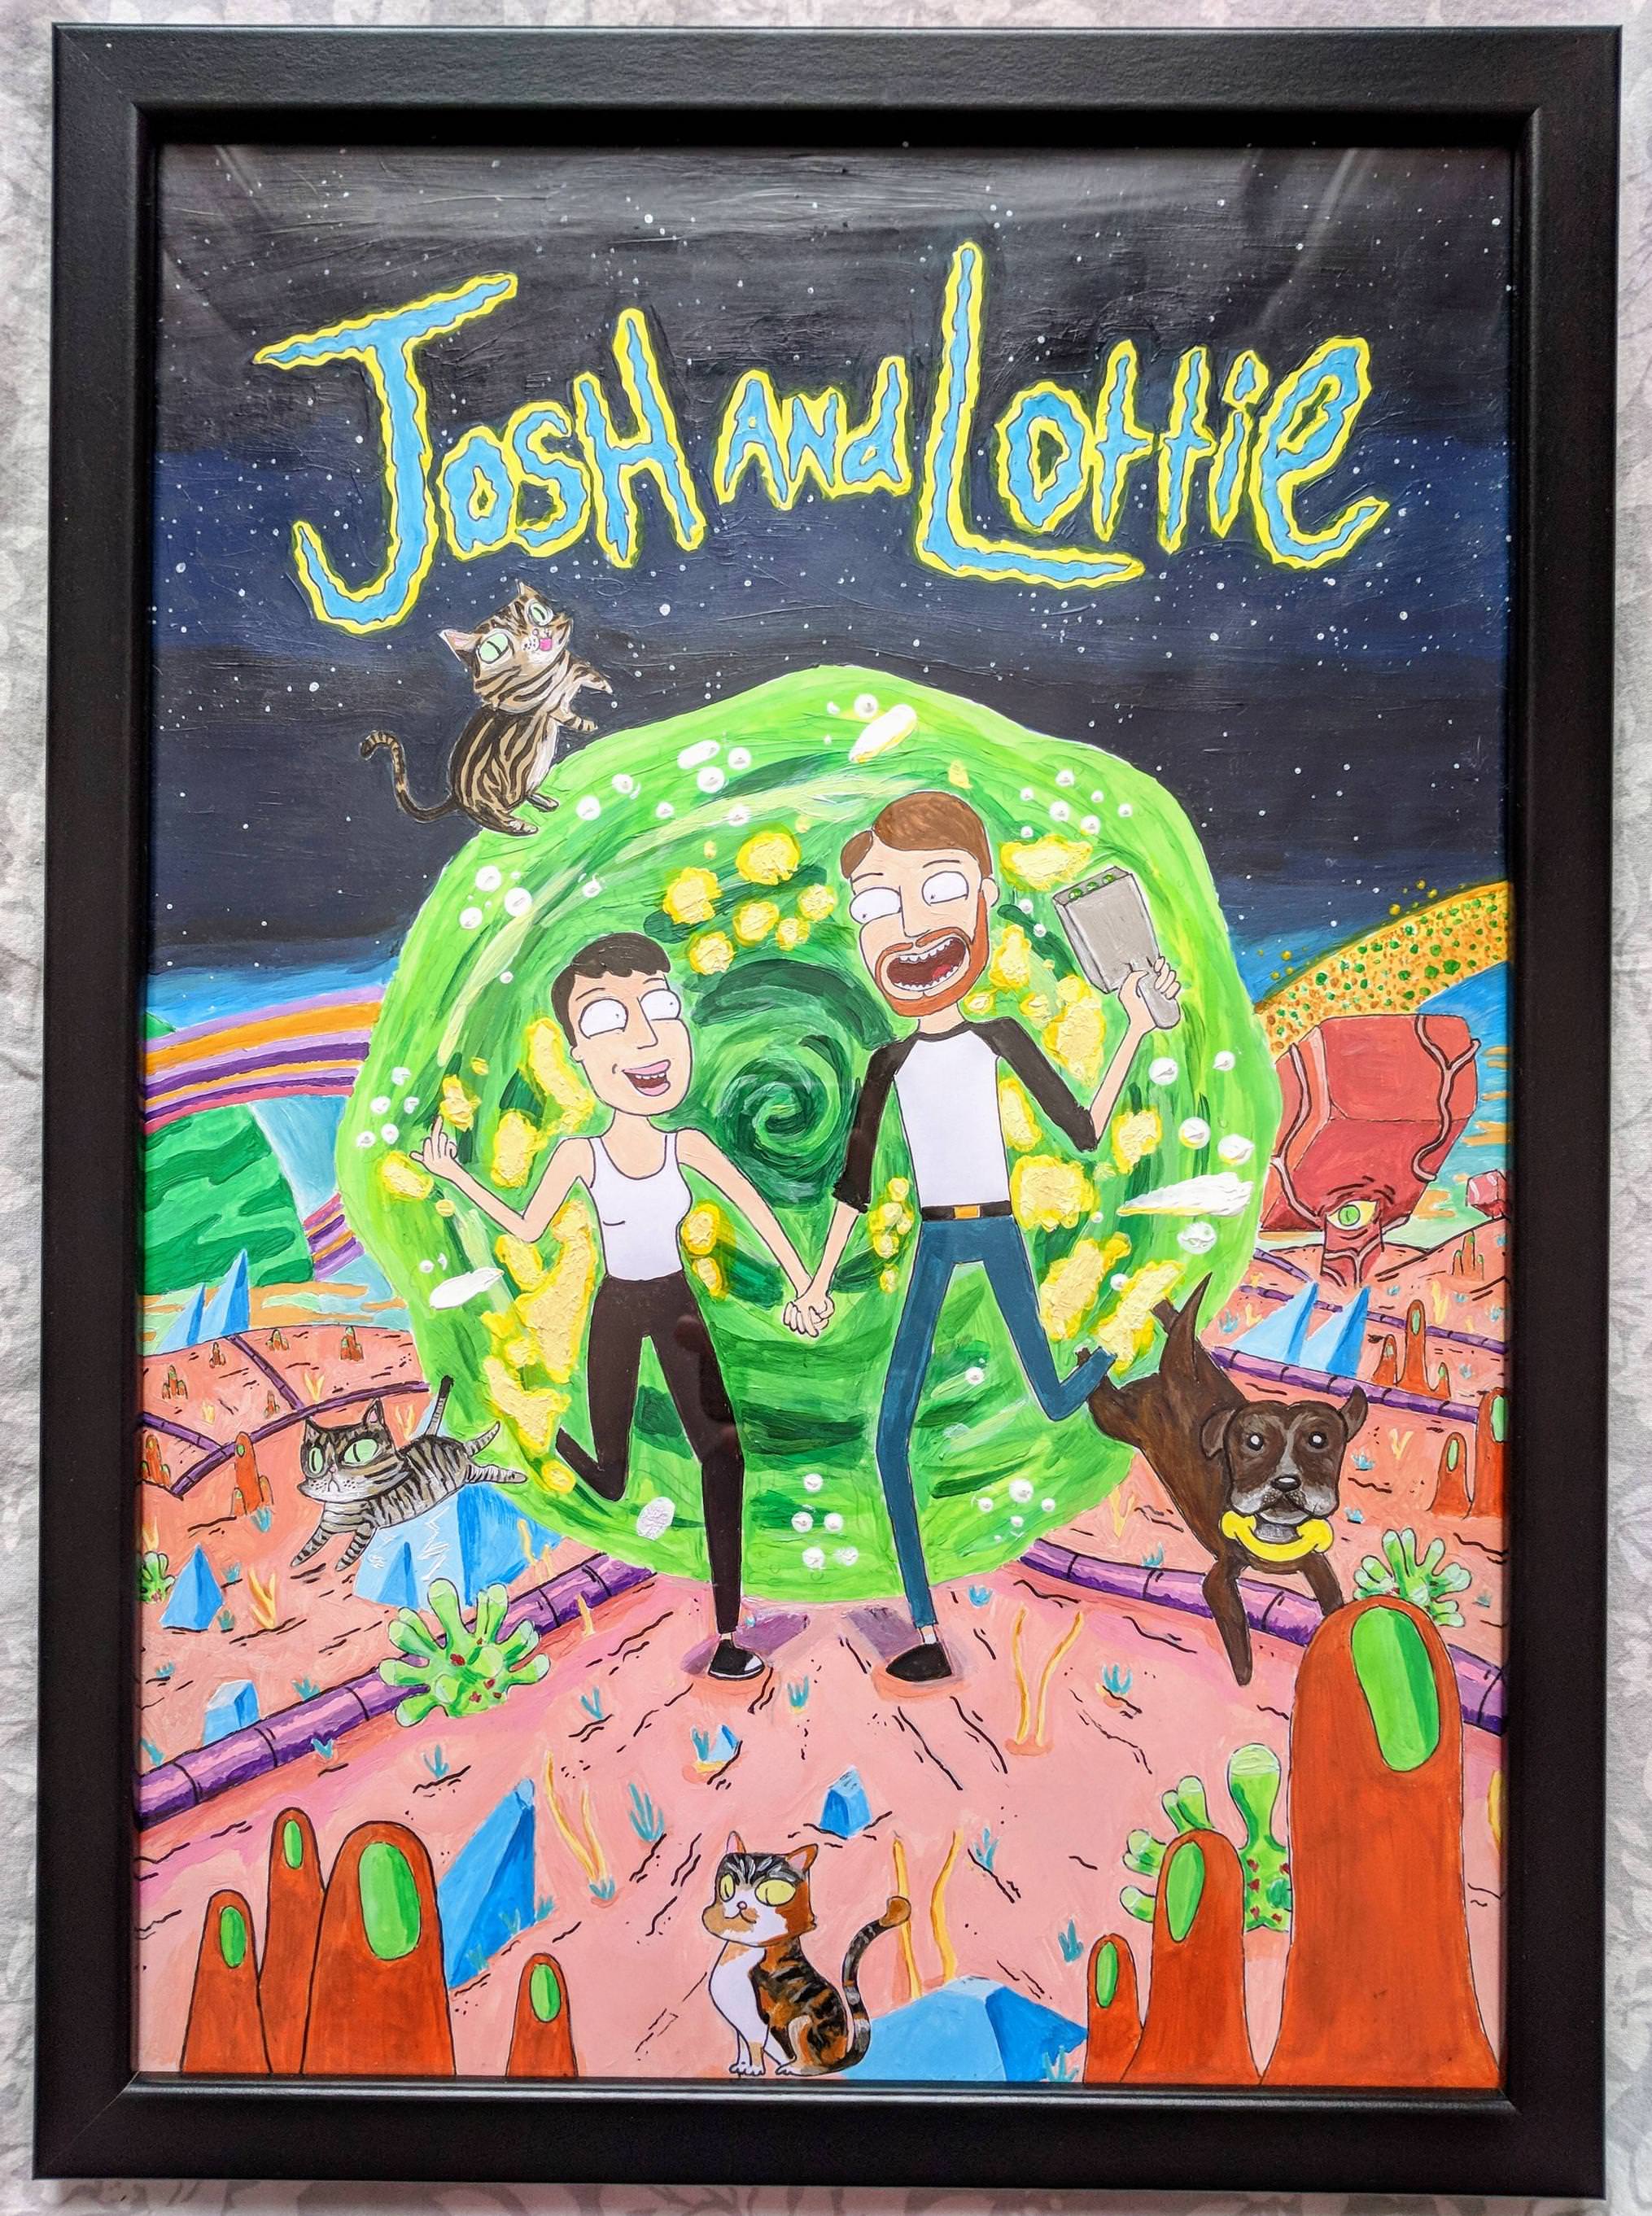 Josh and Lottie